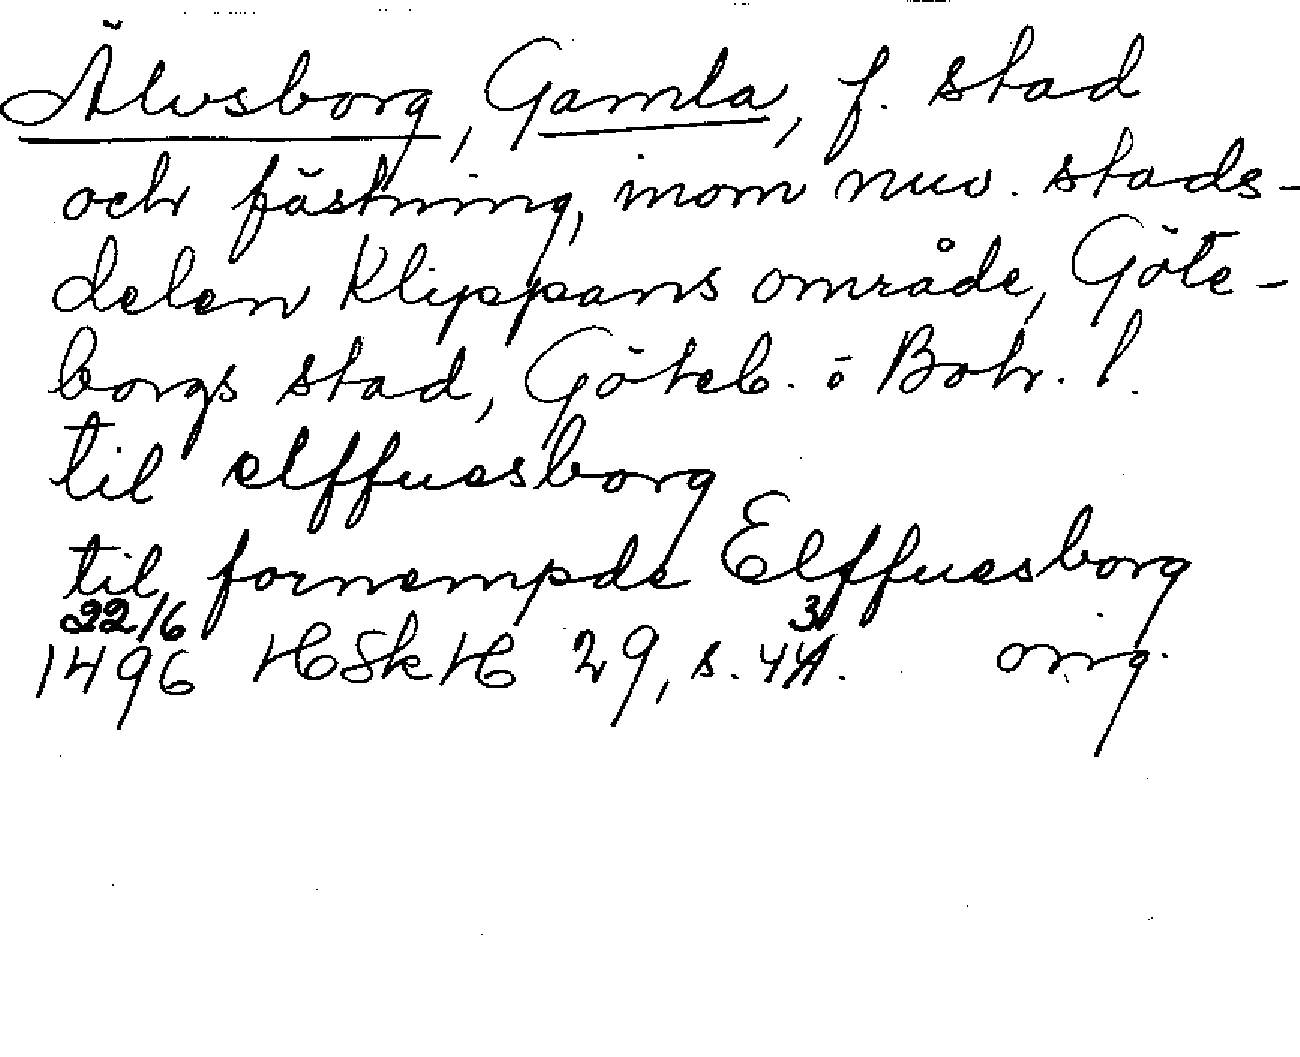 Älvsborg, Gamla, f. stad
och fästning, inom nuv. stads-
delen Klippans område, Göte-
borgs stad, Göteb. o Boh. l.
til elffuesborg
til fornempde Elffuesborg
22/6
1496 HSkH 29, s. 43. orig.